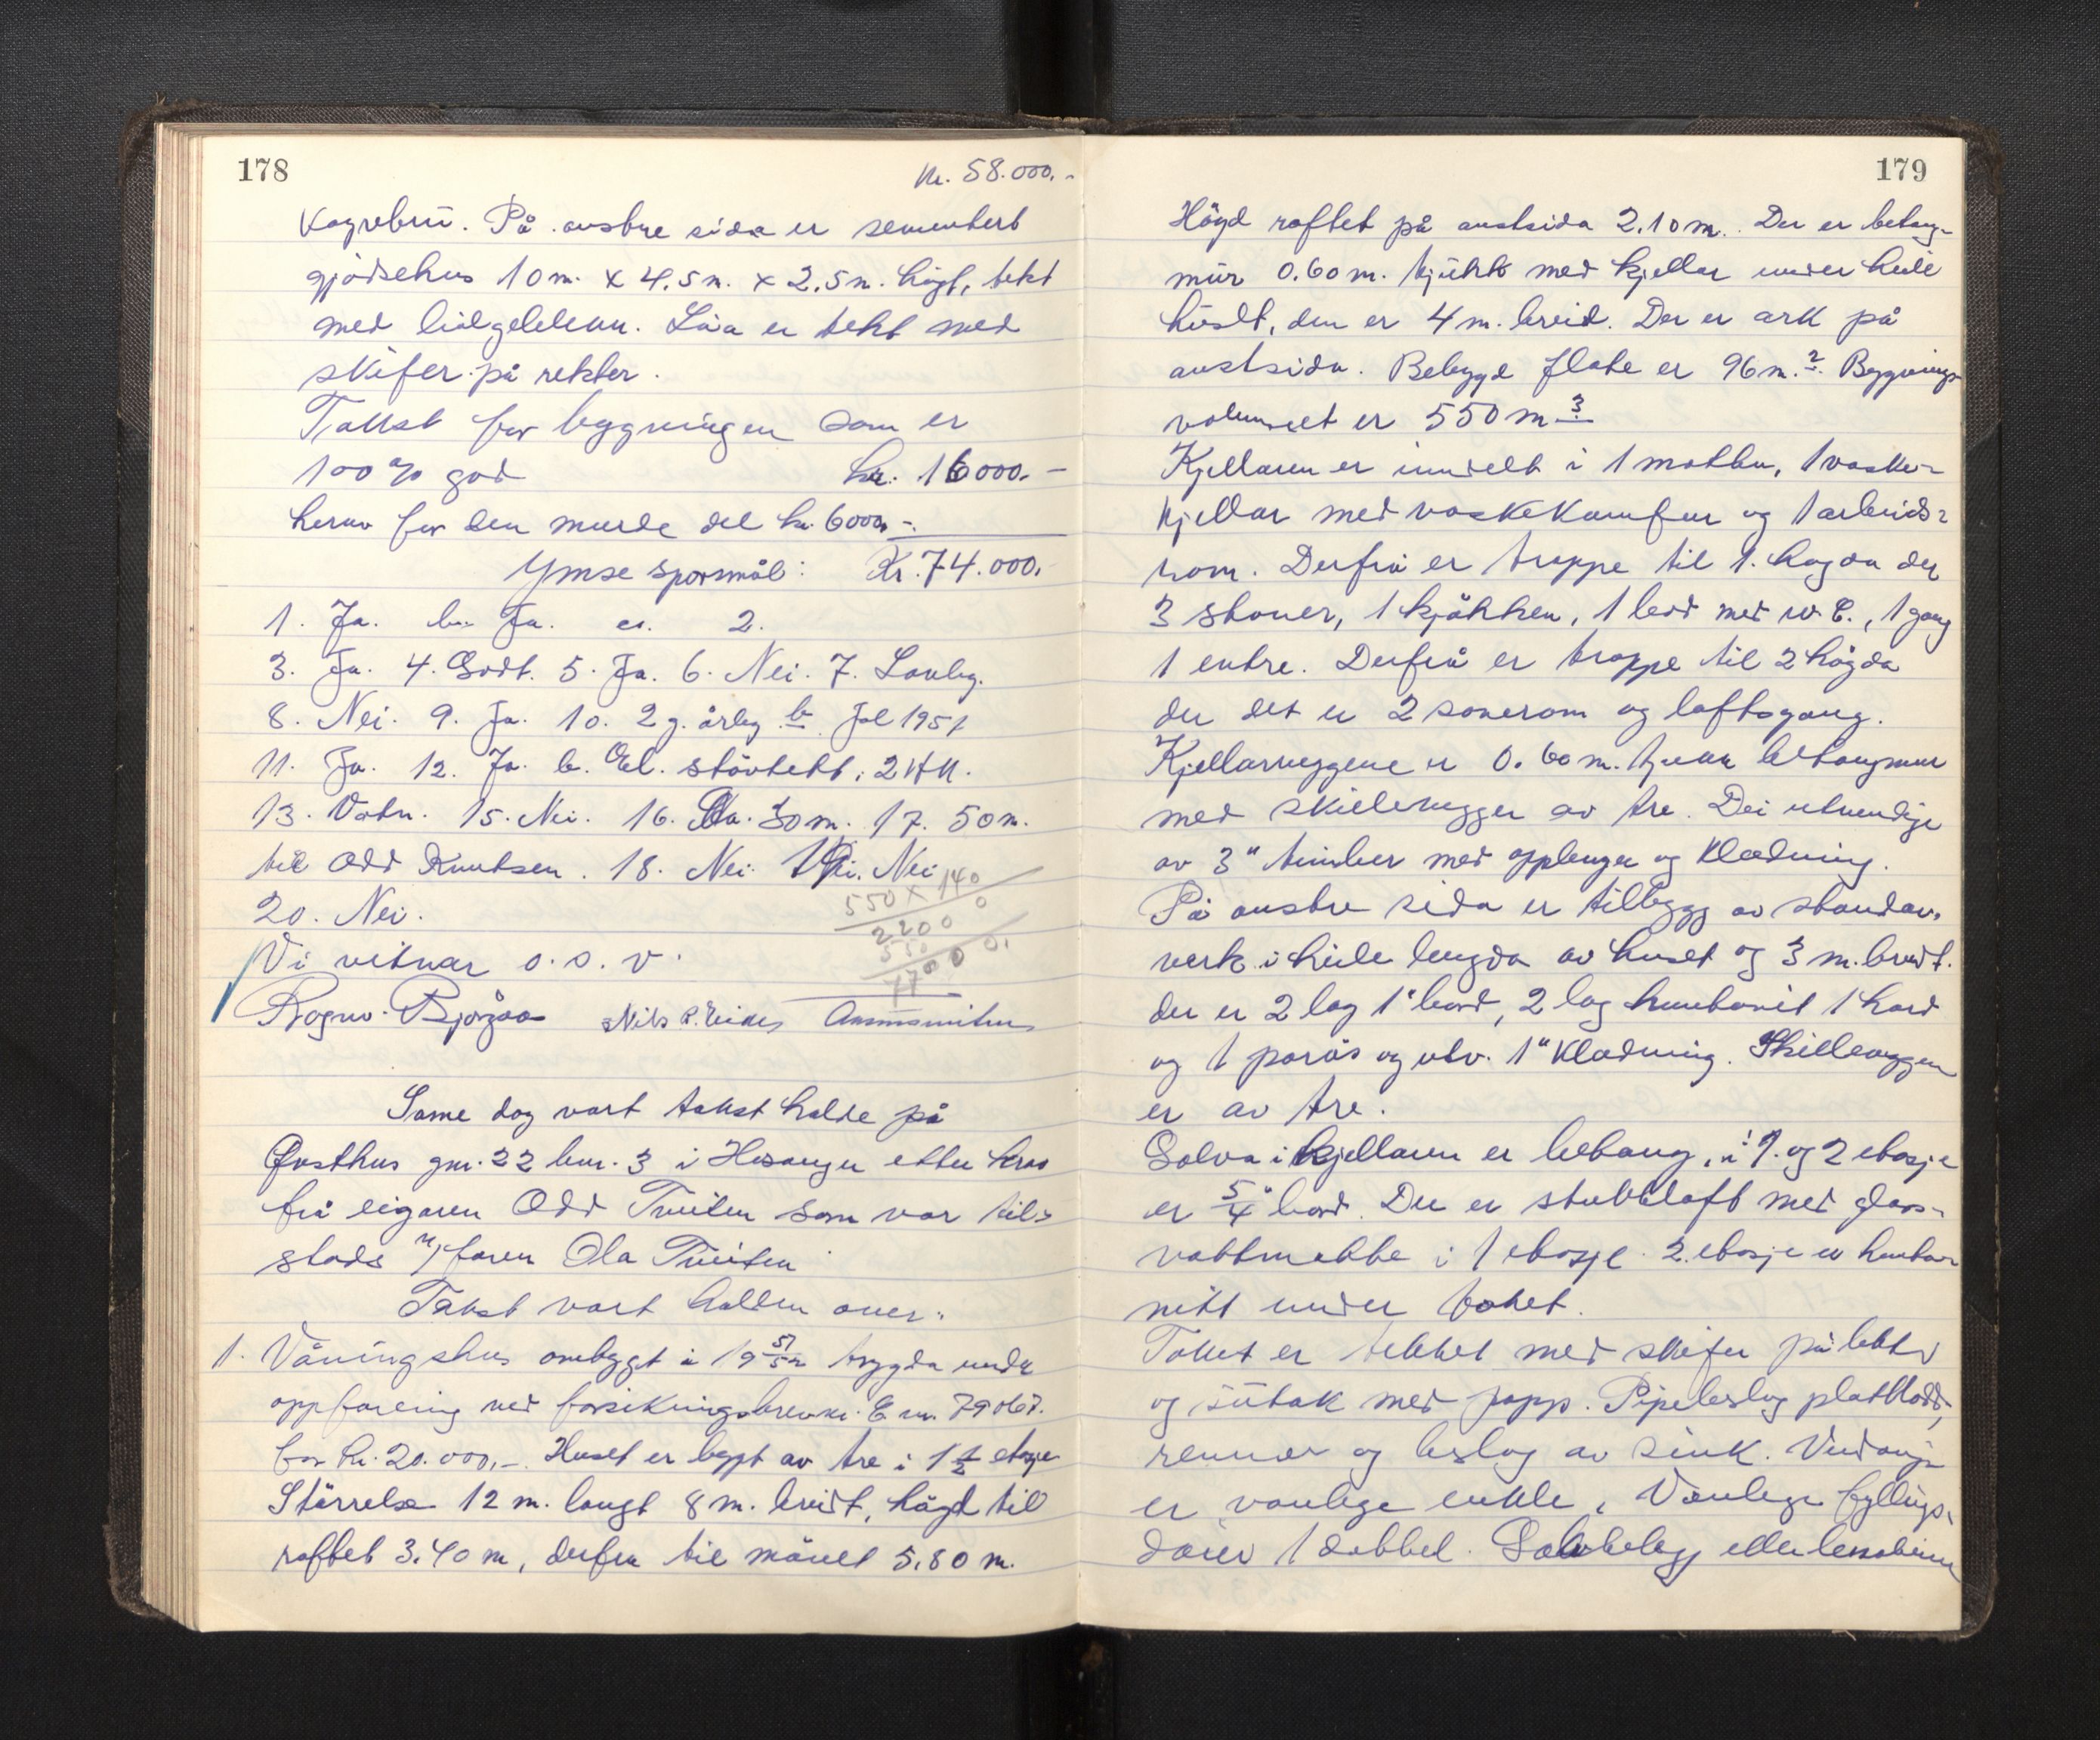 178
Kr. 58.000.-
Køyrebru. På austre sida er sementert
gjødsehus 10 m. x 4,5 m. x 2,5 m. høgt, tekt
med Løa er tekt med
skifer på rekter.
Takst for bygningen som er
100 % god kr. 16000.-
herav for den murde del kr. 6000,-.
Ymse spørsmål: Kr. 74.000.
1. Ja. b. Ja. c. 2.
3. Ja. 4. Godt. 5. Ja. 6. Nei. 7. Lovleg.
8. Nei. 9. Ja. 10. 2 g. årleg b Jol 1951
11. Ja. 12. Ja. b. El. støvtett, 2 HK.
13. Vatn. 15. Nei. 16. 30 m. 17. 50 m.
til Odd Knutsen. 18. Nei. Nei
20. Nei.
550 x 140
2200 0
550
77000 0,
Vi vitnar o. s. v.
Rognv. Bjørgaas Nils P. Eikes
Same dag vart takst halde på
Østhus gnr. 22 bnr. 3 i Hosanger etter krav
frå eigaren Odd Tveiten som var til-
stads v/faren Ola Tveiten
Takst vart halden over:
1. Våningshus ombygt i 19 51/52 trygda under
oppføring ved forsikringsbrev nr. E nr. 79067.
for kr. 20.000,-. Huset er bygt av tre i 1 1/2 etasje
Størrelse 12 m. langt 8 m. breidt, høgd til
raftet 3.40 m, derfra til mønet 5.80 m.
179
Høgd raftet på austsida 2.10 m. Der er betong-
mur 0.60 m. tjukk med kjellar under heile
huset, den er 4 m. breid. Der er ark på
austsida. Bebygd flate er 96 m.2. Bygnings-
volumet er 550 m3
Kjellaren er inndelt i 1 matbu, 1 vaske-
kjellar med vaskekomfur og 1 arbeids-
rom. Derfrå er troppe til 1. høgda der
3 stover, 1 kjøkken, 1 bad med W.C., 1 gang
1 entre. Derfrå er troppe til 2 høgda
der det er 2 soverom og loftsgang.
Kjellarveggene er 0.60 m. betongmur
med skilevegger av tre. Dei utvendige
av 3" timber med opplenger og Kledning.
På austre sida er tilbygg av standar-
verk i heile lengda av huset og 3 m. breidt.
der er 2 lag 1" bord, 2 lag huntonit 1 hard
og 1 porøs og utv. 1" Kledning. Skilleveggen
er av tre.
Golva i kjellaren er betong, i 1. og 2 etasje
er 5/4" bord. Der er stubbloft med glas-
vattmatte i 1 etasje. 2. etasje er hunto-
nitt under taket.
Taket er tekket med skifer på lekter
og sutak med papp. Pipebeslag plattlodd,
renner og beslag av sink. Vindauga
er vanlege enkle, Vanlege fyllings-
dører 1 dobbel. Golvbelegg